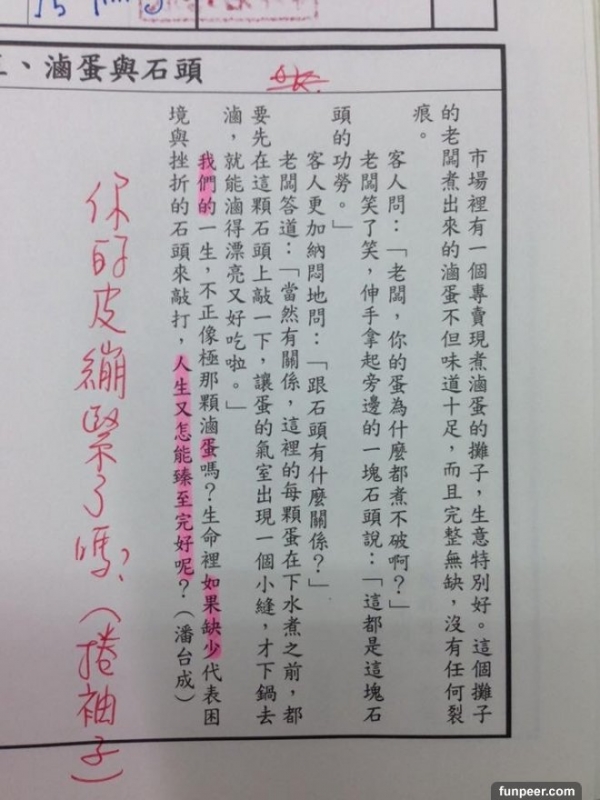 、滷蛋與石頭
市場裡有一個專賣現煮滷蛋的攤子，生意特別好。這個攤子
的老闆煮出來的滷蛋不但味道十足，而且完整無缺，沒有任何裂
痕。
客人問：「老闆，你的蛋為什麼都煮不破啊？」
老闆笑了笑，伸手拿起旁邊的一塊石頭說：「這都是這塊石
頭的功勞。」
客人更加納悶地問：「跟石頭有什麼關係？」
老闆答道：「當然有關係，這裡的每顆蛋在下水煮之前，都
要先在這顆石頭上敲一下，讓蛋的氣室出現一個小縫，才下鍋去
滷，就能滷得漂亮又好吃啦。」
我們的一生，不正像極那顆滷蛋嗎？生命裡如果缺少代表困
境與挫折的石頭來敲打，人生又怎能臻至完好呢？（潘台成）
你的皮繃緊了嗎？（捲袖子）
funpeer.com